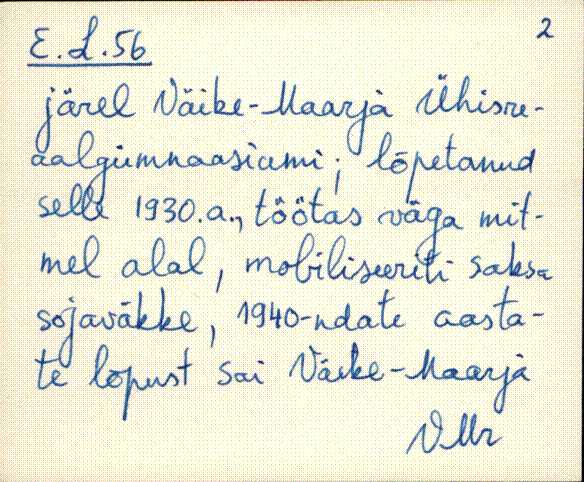 2
E.L.56
järel Väike-Maarja Ühisre-
aalgümnaasiumi; lõpetanud
selle 1930.a., töötas väga mit-
mel alal, mobiliseeriti saksa
sõjaväkke, 1940-ndate aasta-
te lõpust sai Väike-Maarja
VMr